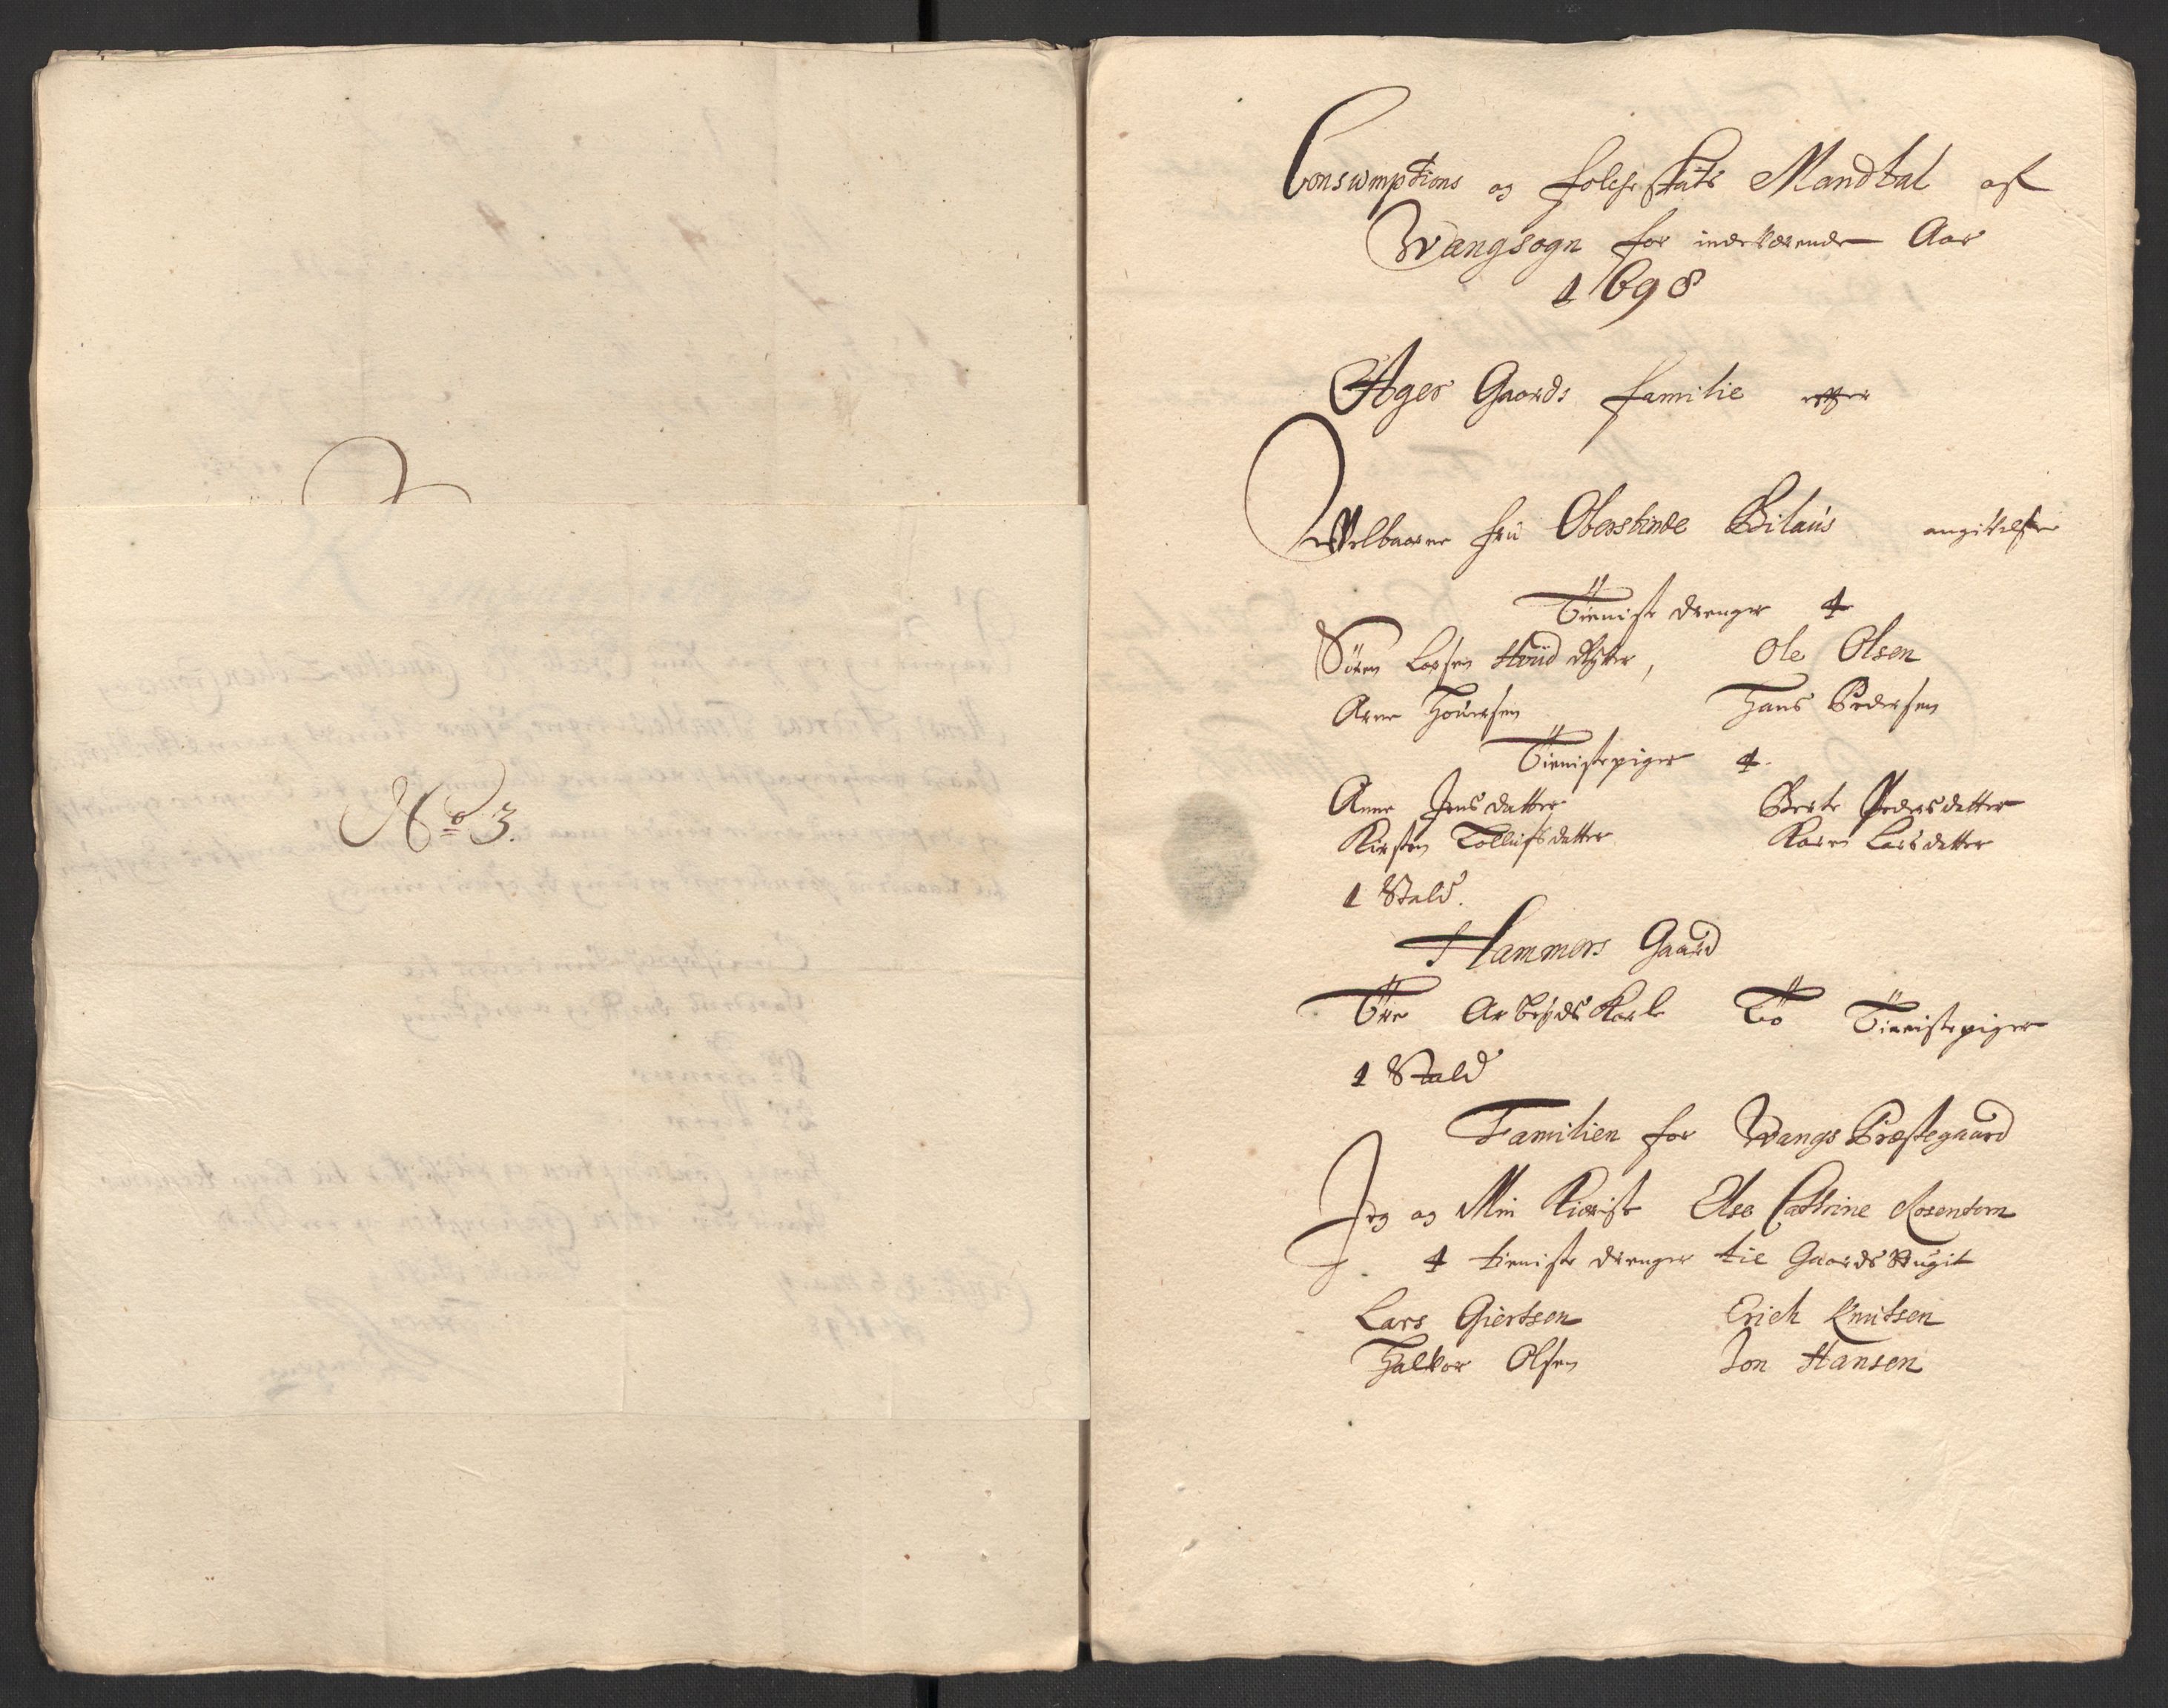 No 3.
Consumptions og folcheskats Mandtal af
Wangsogn for indeværende Aar
1698
Ager Gaards familie efter
Welbaarne frü Oberstinde Bilaus angivelse
Tieniste drenger 4
Sören Larsen Ole Olsen
Arne Hans Pedersen
Tienistepiger 4.
Anne Jensdatter Berte Pedersdatter
Kirsten Tollufsdatter Karen Larsdatter
1 Stald.
Hammers Gaard
Tre Arbejds Karle To Tienistepiger
1 Stald
Familien for Wangs Præstegaard
Jeg og Min Kieriste Else Cathrine Rosentorn
4 tieniste drenger til Gaards brugit
Lars Giertsen Erich Knutsen
Halvor Olsen Jon Hansen